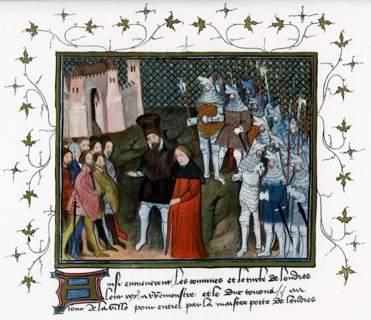 Ainsi emmenerent les commes et le tube de londres
leur roy a Westmonstre et le duc tourna au
tour de la ville pour entrer par la maistre porte de londres